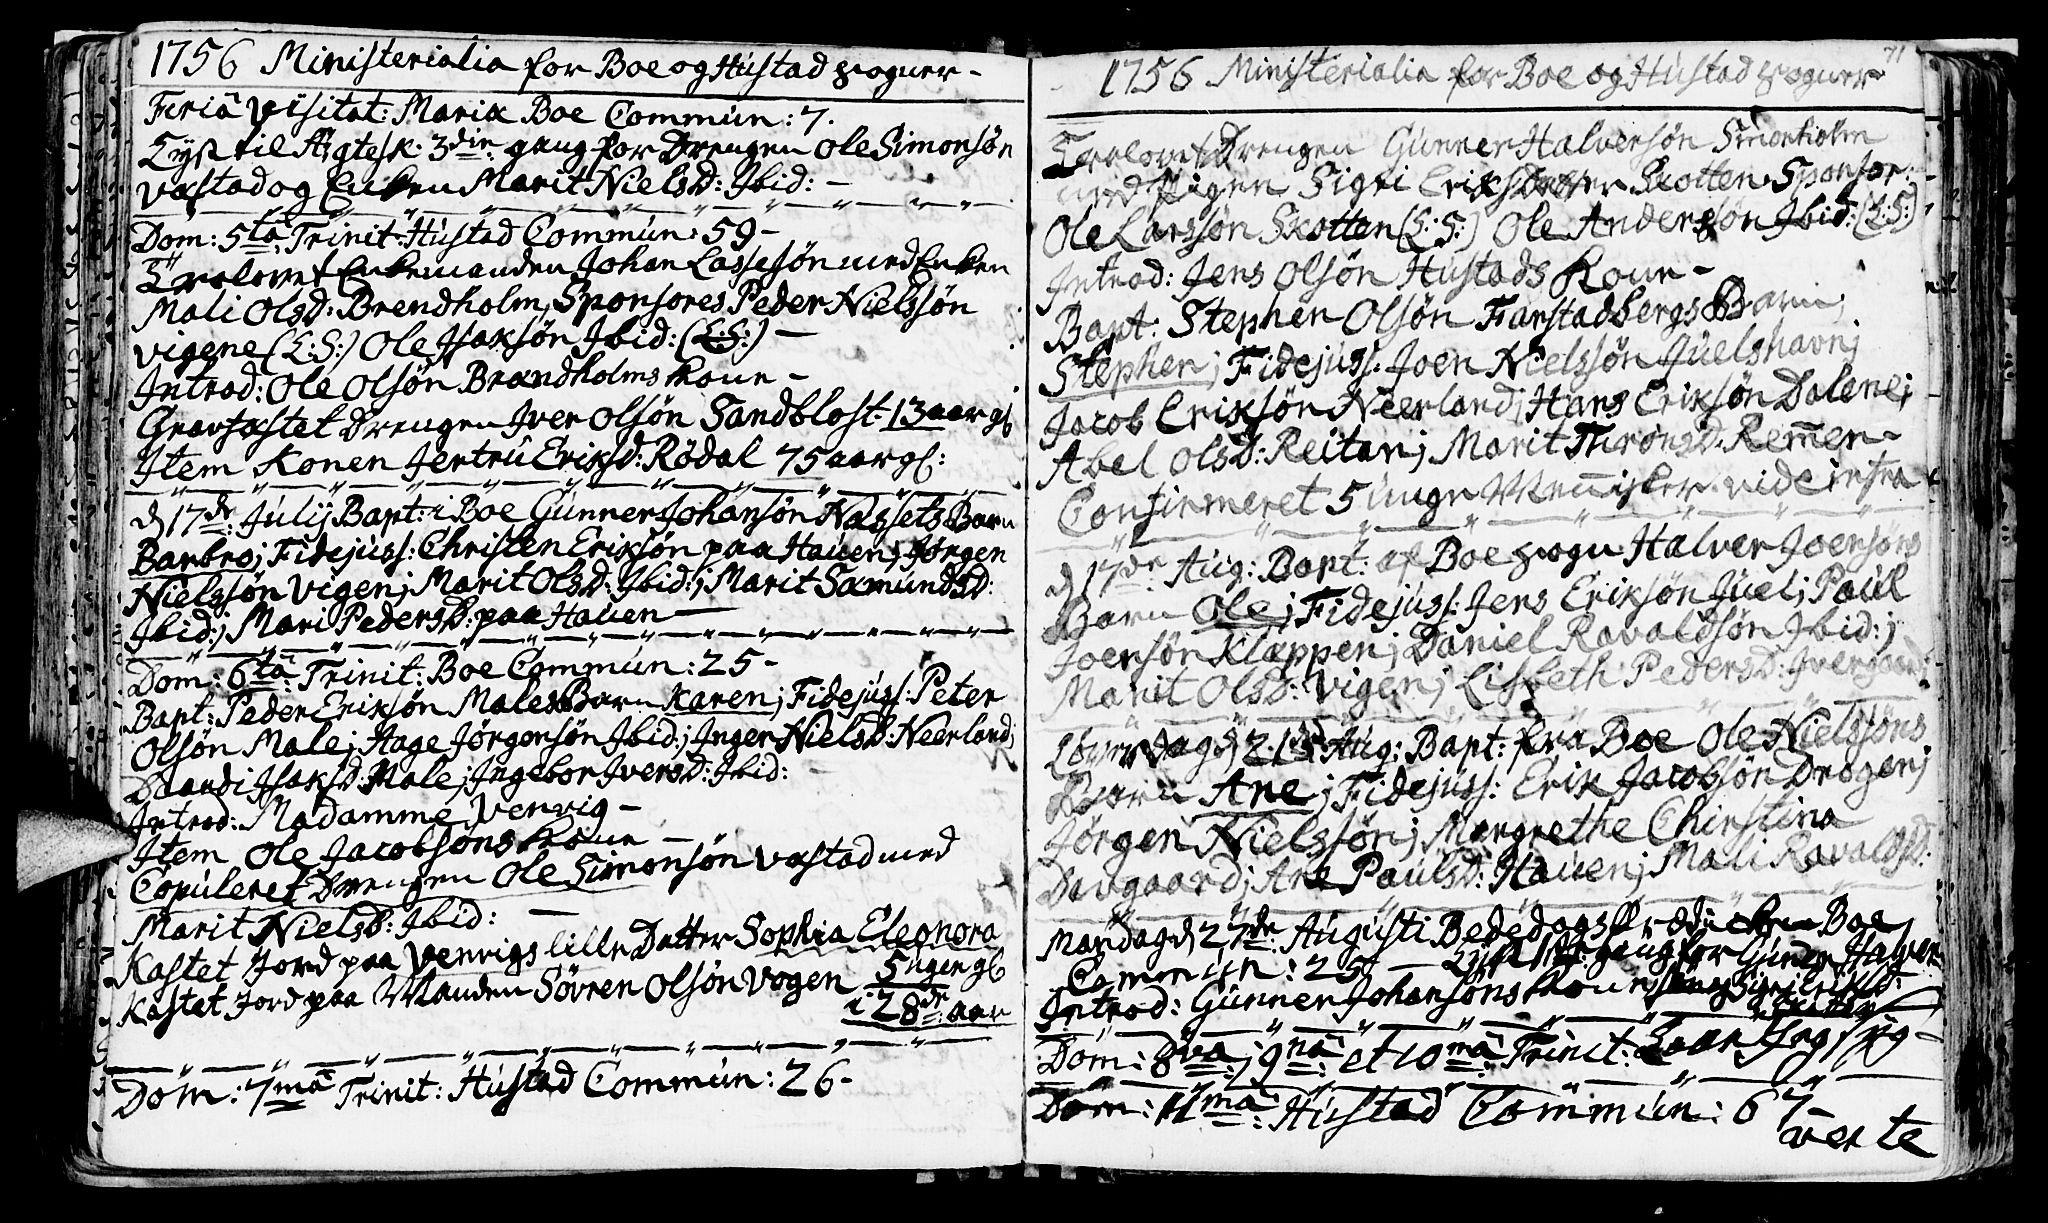 1756 Ministerialia for Boe og Hustad Sogner-
Feriâ Visitat: Mariæ Boe Commun: 7.
Lyst til Ægtesk. 3die gang for Drengen Ole Simonsøn
Vastad og Enken Marit NielsD: Ibid: -
Dom: 5ta Trinit: Hustad Commun: 59-
Trolovet Enkemanden Johan Lassesøn med Enken
Mali OlsD: Brendholm, Sponsores Peder Nielssøn
Vigene (L:S:) Ole Isaksøn Ibid: (L:S:) -
Introd: Ole Olsøn Brandholms Kone -
Gravfæstet Drengen Iver Olsøn Sandblost. 13 aar gl
Item Konen Jertrû EriksD: Rödal 75 aar gl:
d 17de Julij Bapt: i Boe Gunner Johansøn Næssets Barn
Barbro; Fidejuss: Christen Eriksøn paa Hauen; Jørgen
Nielssøn Vigen; Marit OlsD: Ibid:; Marit SamundsD:
Ibid:; Mari PedersD: paa Hauen -
Dom: 6ta Trinit: Boe Commun: 25-
Bapt: Peder Eriksøn Males Barn Karen; Fidejuss: Peter
Olsøn Male; Hage Jörgensøn Ibid:; Inger NielsD: Neerland;
Isaksd: Male; Ingebor IversD: Ibid:
Introd: Madamme Venvig -
Item Ole Jacobsøns Kone -
Copuleret Drengen Ole Simonsøn Vastad med
Marit NielsD: Ibid: -
Kastet Jord paa Venvigs lille Datter Sophia Eleonora
5 uger gl
Kastet Jord paa Manden Sövren Olsøn Vogen
i 28de aar
Dom: 7mâ Trinit: Hustad Commun: 26-
71
1756 Ministerialia for Boe og Hustad Sogner
Trolovet Drengen Gunner Halversøn Smorholm
med Pigen Sigri Eriksdatter Skotten. Sponsor:
Ole Larssøn Skotten (L:S:) Ole Andersøn Ibid: (L:S:)
Introd: Jens Olsøn Hustads Kone -
Bapt: Stephen Olsøn Farstadbergs Barn;
Stephen; Fidejuss: Joen Nielssøn Juelshavn;
Jacob Eriksøn Neerland; Hans Eriksøn Dalene;
Abel OlsD: Reitan; Marit ThronsD: Remen-
Confirmeret 5 unge Mennisker vide infra
d 17de Aug: Bapt: af Boe Sogn Halver Joensøns
Barn Ole; Fidejuss: Jens Eriksøn Juel; Paul
Joensøn Klappen; Daniel Ravaldsøn Ibid:;
Marit OlsD: Vigen; Lisbeth PedersD: Ivergaard
Løverdag d 21de Aug: Bapt: fra Boe Ole Nielssøns
Barn Ane; Fidejuss: Erik Jacobsøn Drågen;
Jörgen Nielssøn; Margrethe Chirstina
Devgaard; Ane PaulsD: Hauen; Mali RavaldsD:
Mandag d 27de Augusti Bededags Boe
Commun: 25- Lyst 1ste gang for Guner Halver-
Introd: Gunner Johansøns Kone Sigri EriksD:
Skotten
Dom: 8va; 9nâ et 10mâ Trinit: Laae Jeg syg -
Dom: 11mâ: Hustad Commun: 67-
verte